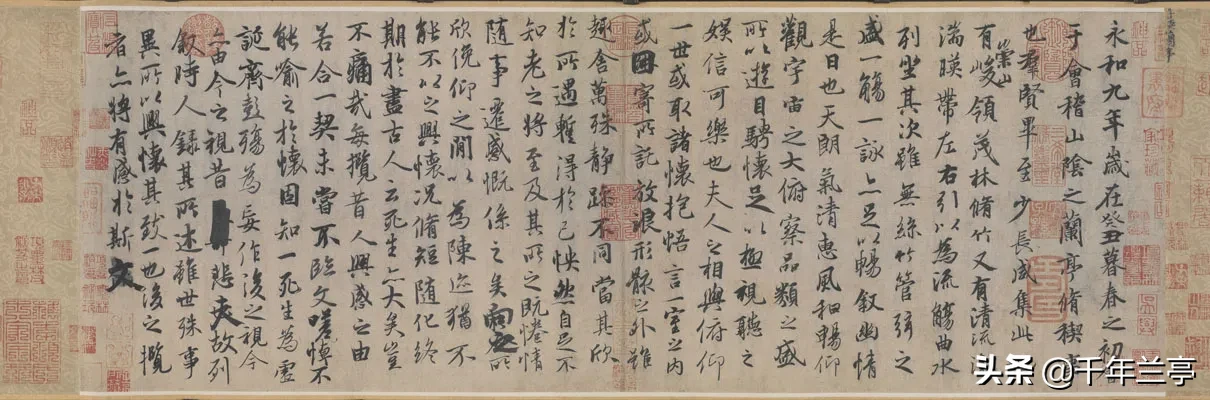 永和九年歲在癸丑暮春之初會
于會稽山陰之蘭亭脩稧事
也羣賢畢至少長咸集此
有崇山峻領茂林脩竹又有清流
湍暎帶左右引以為流觴曲水
列坐其次雖無絲竹管弦之
盛一觴一詠亦足以暢敘幽情
是日也天朗氣清惠風和暢仰
觀宇宙之大俯察品類之盛
所以遊目騁懷足以極視聽之
娛信可樂也夫人之相與俯仰
一世或取諸懷抱悟言一室之內
或因寄所託放浪形骸之外雖
趣舍萬殊靜躁不同當其欣
於所遇蹔得於己怏然自足不
知老之將至及其所之既惓情
隨事遷感慨係之矣向之所
欣俛仰之閒以為陳迹猶不
能不以之興懷況脩短隨化終
期於盡古人云死生亦大矣豈
不痛哉每攬昔人興感之由
若合一契未嘗不臨文嗟悼不
能喻之於懷固知一死生為虛
誕齊彭殤為妄作後之視今
亦由今之視昔悲夫故列
敘時人錄其所述雖世殊事
異所以興懷其致一也後之攬
者亦將有感於斯文
头条 @千年兰亭